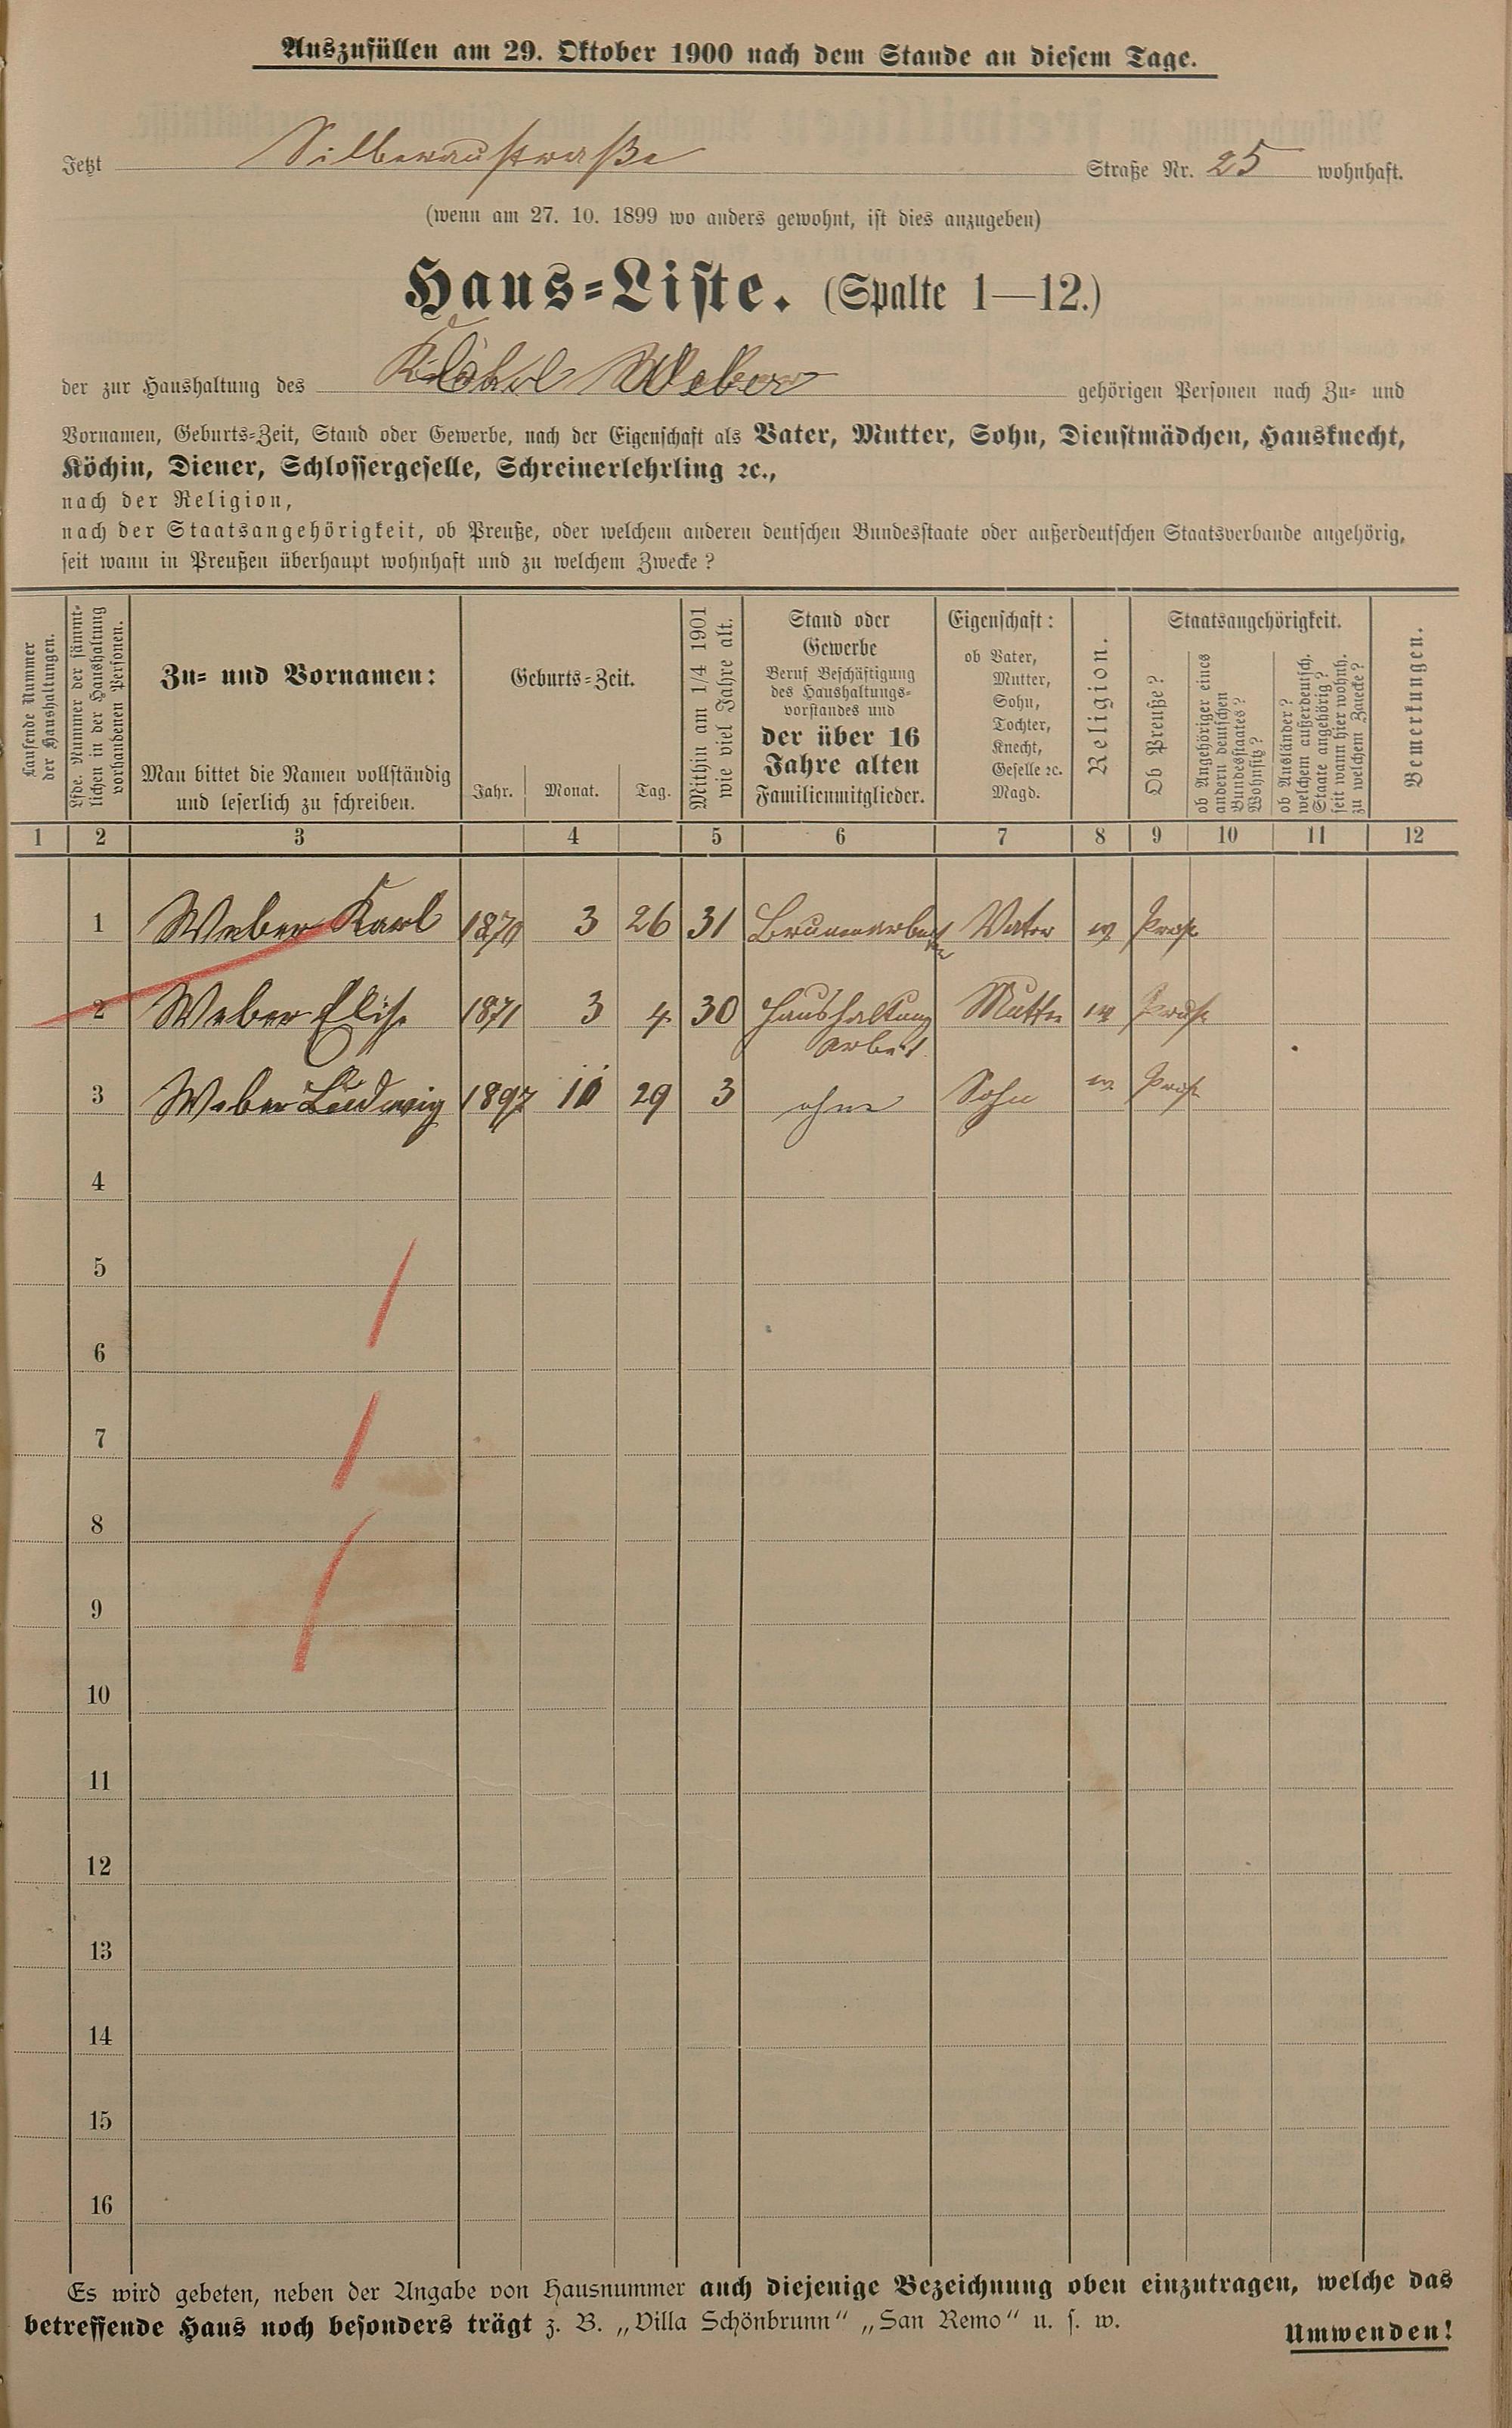 Auszufüllen am 29. Oktober 1900 nach dem Stande an diesem Tage.
Jetzt Silberaustraße Straße Nr. 25 wohnhaft.
(wenn am 27. 10. 1899 wo anders gewohnt, ist dies anzugeben)
Haus-Liste. (Spalte 1—12.)
der zur Haushaltung des Weber gehörigen Personen nach Zu- und
Vornamen, Geburts-Zeit, Stand oder Gewerbe, nach der Eigenschaft als Vater, Mutter, Sohn, Dienstmädchen, Hausknecht,
Köchin, Diener, Schlossergeselle, Schreinerlehrling ꝛc.,
nach der Religion,
nach der Staatsangehörigkeit, ob Preuße, oder welchem anderen deutschen Bundesstaate oder außerdeutschen Staatsverbande angehörig,
seit wann in Preußen überhaupt wohnhaft und zu welchem Zwecke?
Laufende Nummer
der Haushaltungen.
Lfde. Nummer der sämmt-
lichen in der Haushaltung
vorhandenen Personen.
Zu- und Vornamen:
Man bittet die Namen vollständig
und leserlich zu schreiben.
Geburts-Zeit.
Jahr. Monat. Tag.
Mithin am 1/4 1901
wie viel Jahre alt.
Stand oder
Gewerbe
Beruf Beschäftigung
des Haushaltungs-
vorstandes und
der über 16
Jahre alten
Familienmitglieder.
Eigenschaft:
ob Vater,
Mutter,
Sohn,
Tochter,
Knecht,
Geselle ꝛc.
Magd.
Religion.
Staatsangehörigkeit.
Ob Preuße?
ob Angehöriger eines
andern deutschen
Bundesstaates?
Wohnsitz?
ob Ausländer?
welchem außerdeutsch.
Staate angehörig?
seit wann hier wohnh.
zu welchem Zwecke?
Bemerkungen.
1 2 3 4 5 6 7 8 9 10 11 12
1 Weber Karl 1870 3 26 31 Vater
2 Weber Elise 1871 3 4 30 Haushaltung Mutter
arbeit
3 Weber Ludwig 1897 29 3 ohne Sohn
4
5
6
7
8
9
10
11
12
13
14
15
16
Es wird gebeten, neben der Angabe von Hausnummer auch diejenige Bezeichnung oben einzutragen, welche das
betreffende Haus noch besonders trägt z. B. „Villa Schönbrunn“ „San Remo“ u. s. w.
Umwenden!